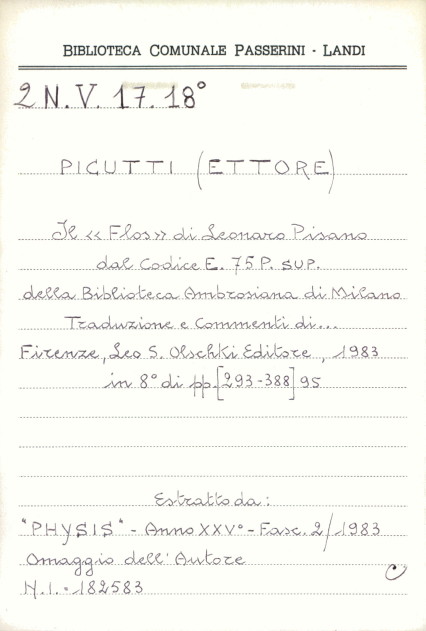 BIBLIOTECA COMUNALE PASSERINI - LANDI
2 N.V. 17. 18°
PICUTTI (ETTORE)
Il << Flos>> di Leonaro Pisano
dal Codice E. 75 P. SUP.
della Biblioteca Ambrosiana di Milano
Traduzione e Commenti di...
Firenze, Leo S. Olschki Editore, 1983
in 8° di pp. [293-388] 95
Estratto da:
"PHYSIS" - Anno XXV° - Fasc. 2/1983
Omaggio dell'Autore
N.I. • 182583
C